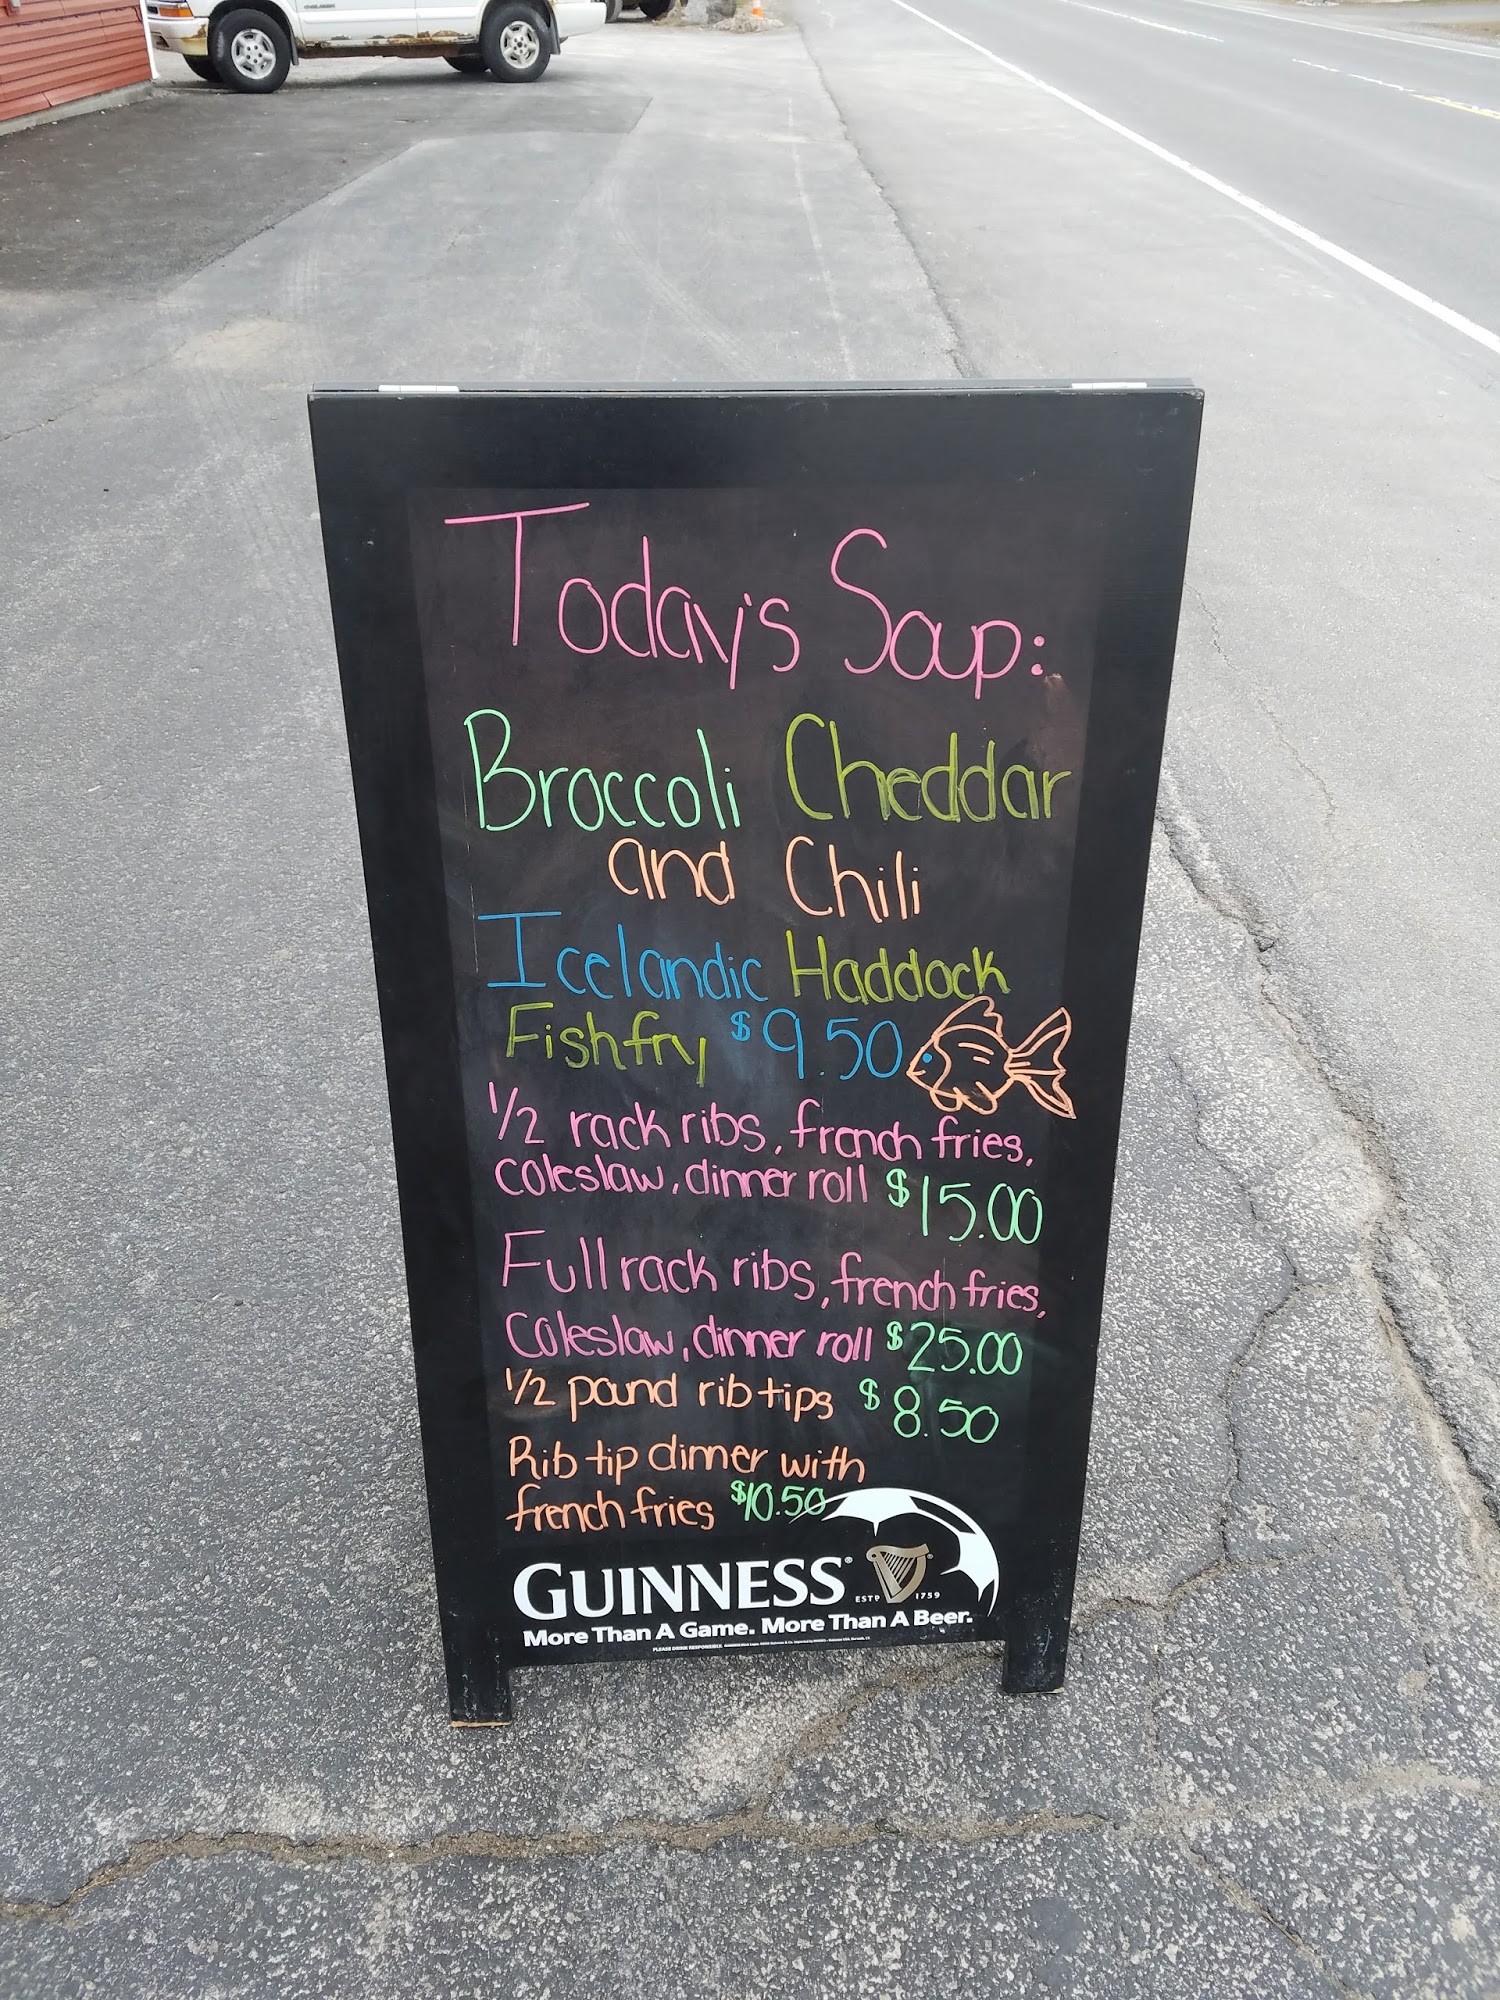 Today's Soup:
Broccoli Cheddar
and Chili
Icelandic Haddock
Fish fry $9.50
1/2 rack ribs, french fries,
coleslaw, dinner roll $15.00
Full rack ribs, french fries,
Coleslaw, dinner roll $25.00
1/2 pound rib tips $8.50
Rib tip dinner with
french fries $10.50
GUINNESS®
ESTD 1759
More Than A Game. More Than A Beer.
PLEASE DRINK RESPONSIBLY.